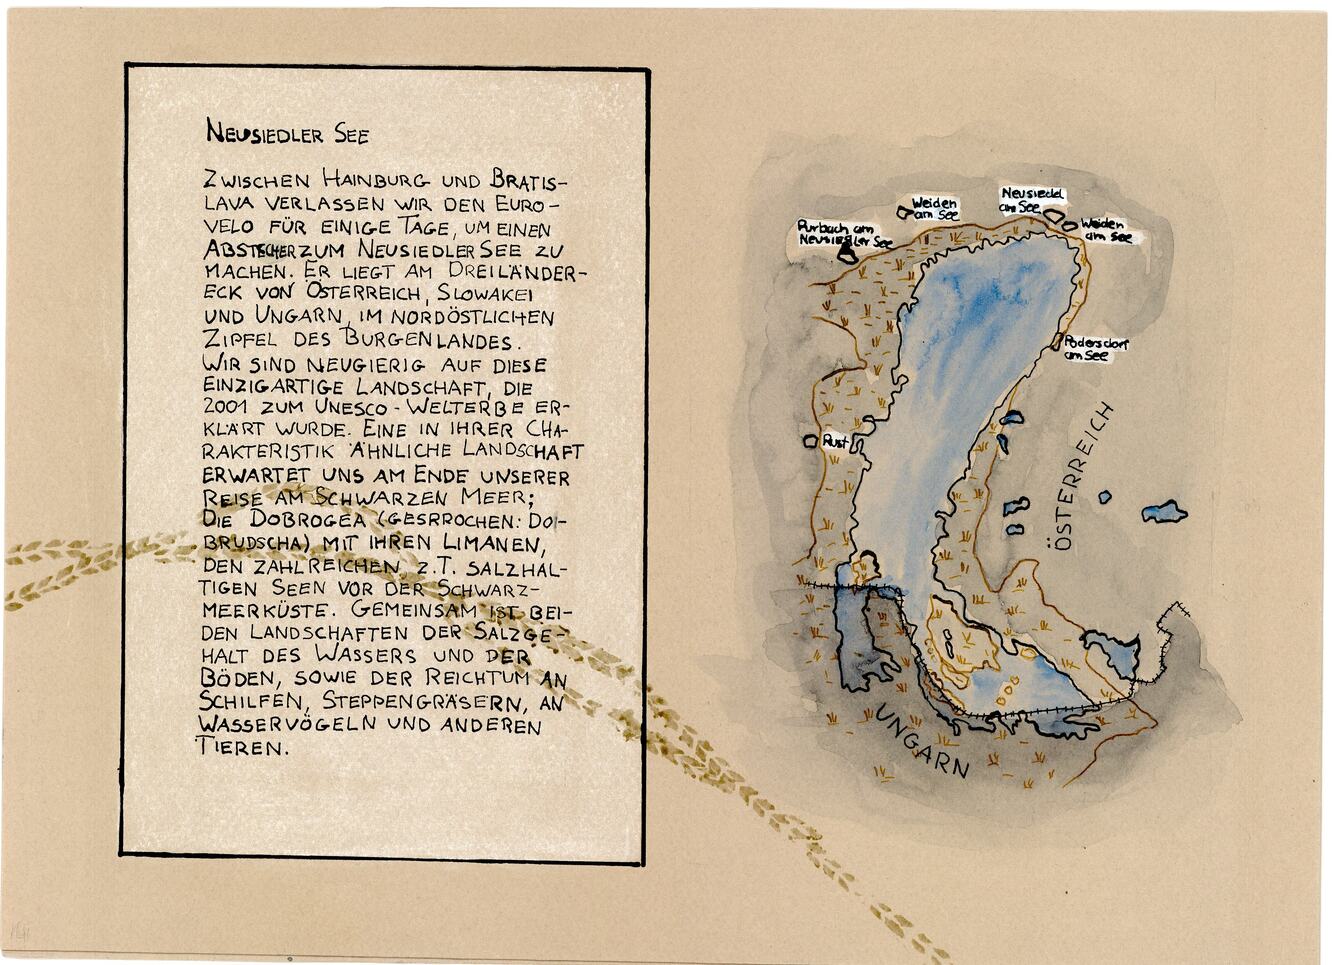 NEUSIEDLER SEE
ZWISCHEN HAINBURG UND BRATIS-
LAVA VERLASSEN WIR DEN EURO-
VELO FÜR EINIGE TAGE, UM EINEN
ABSTECHER ZUM NEUSIEDLER SEE ZU
MACHEN. ER LIEGT AM DREILÄNDER-
ECK VON ÖSTERREICH, SLOWAKEI
UND UNGARN, IM NORDÖSTLICHEN
ZIPFEL DES BURGENLANDES.
WIR SIND NEUGIERIG AUF DIESE
EINZIGARTIGE LANDSCHAFT, DIE
2001 ZUM UNESCO-WELTERBE ER-
KLÄRT WURDE. EINE IN IHRER CHA-
RAKTERISTIK ÄHNLICHE LANDSCHAFT
ERWARTET UNS AM ENDE UNSERER
REISE AM SCHWARZEN MEER;
DIE DOBROGEA (GESPROCHEN: DO-
BRUDSCHA) MIT IHREN LIMANEN,
DEN ZAHLREICHEN, Z.T. SALZHAL-
TIGEN SEEN VOR DER SCHWARZ-
MEERKÜSTE. GEMEINSAM IST BEI-
DEN LANDSCHAFTEN DER SALZGE-
HALT DES WASSERS UND DER
BÖDEN, SOWIE DER REICHTUM AN
SCHILFEN, STEPPENGRÄSERN, AN
WASSERVÖGELN UND ANDEREN
TIEREN.
Purbach am
Neusiedler See
Weiden
am See
Neusiedel
am See
Weiden
am See
Podersdorf
am See
Rust
ÖSTERREICH
UNGARN